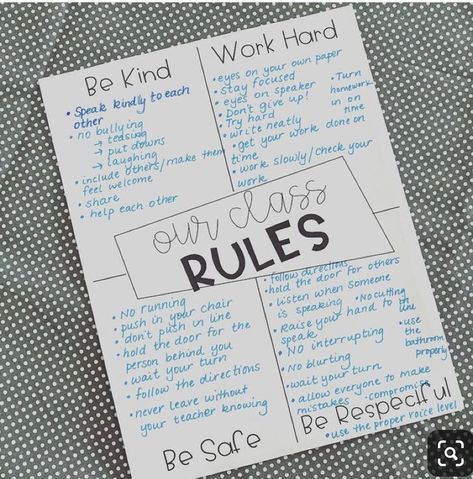 Be Kind
• Speak kindly to each
other
• no bullying
→ teasing
→ put downs
→ laughing
• include others/make them
feel welcome
• share
• help each other
Work Hard
• eyes on your own paper
• stay focused
• eyes on speaker
• Don't give up!
Try hard
• write neatly
• get your work done on
time
• work slowly/check your
work
• Turn
homework
in on
time
our class
RULES
• No running
• push in your chair
• don't push in line
• hold the door for the
person behind you
• wait your turn
• follow the directions
• never leave without
your teacher knowing
Be Safe
• follow directions
• hold the door for others
• listen when someone
is speaking
• No cutting
in line
• raise your hand to
speak
• use
the
bathroom
properly
• No interrupting
• No blurting
• wait your turn
• allow everyone to make
mistakes
• compromise
Be Respectful
• use the proper voice level